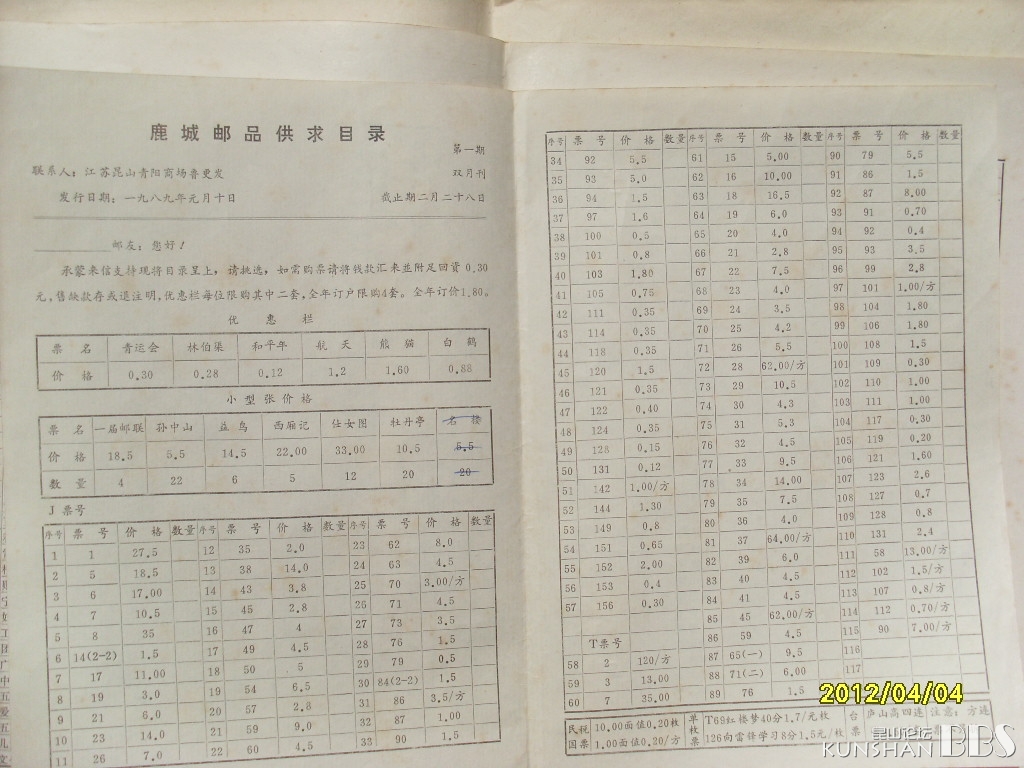 鹿城邮品供求目录
第一期
联系人：江苏昆山青阳商场鲁更发 双月刊
发行日期：一九八九年元月十日 截止期二月二十八日
邮友：您好！
承蒙来信支持现将目录呈上，请挑选，如需购票请将钱款汇来並附足回资0.30
元，售缺款存或退注明，优惠栏每位限购其中二套，全年订户限购4套。全年订价1.80。
优惠栏
票名 青运会 林伯渠 和平年 航天 熊猫 白鹤
价格 0.30 0.28 0.12 1.2 1.60 0.88
小型张价格
票名 一届邮联 孙中山 益鸟 西厢记 仕女图 牡丹亭 名楼
价格 18.5 5.5 14.5 22.00 33.00 10.5 5.5
数量 4 22 6 5 12 20 20
J票号
序号 票号 价格 数量 序号 票号 价格 数量 序号 票号 价格 数量
1 1 27.5 12 35 2.0 23 62 8.0
2 5 18.5 13 38 14.0 24 63 4.5
3 6 17.00 14 43 3.8 25 70 3.00/方
4 7 10.5 15 45 2.8 26 71 4.5
5 8 35 16 47 4 27 73 3.5
6 14(2-2) 1.5 17 49 4.5 28 76 1.5
7 17 11.00 18 50 5 29 79 0.5
8 19 3.0 19 54 6.5 30 84(2-2) 1.5
9 21 6.0 20 57 2.8 31 86 3.5/方
10 23 14.0 21 59 9.0 32 87 1.00
11 26 7.0 22 60 4.5 33 90 1.5
序号 票号 价格 数量 序号 票号 价格 数量 序号 票号 价格 数量
34 92 5.5 61 15 5.00 90 79 5.5
35 93 5.0 62 16 10.00 91 86 1.5
36 94 1.5 63 18 16.5 92 87 8.00
37 97 1.6 64 19 6.0 93 91 0.70
38 100 0.5 65 20 4.0 94 92 0.4
39 101 0.8 66 21 2.8 95 93 3.5
40 103 1.80 67 22 7.5 96 99 2.8
41 105 0.75 68 23 4.0 97 101 1.00/方
42 111 0.35 69 24 3.5 98 104 1.80
43 114 0.35 70 25 4.2 99 106 1.80
44 118 0.35 71 26 5.5 100 108 1.5
45 120 1.5 72 28 62.00/方 101 109 0.30
46 121 0.35 73 29 10.5 102 110 1.00
47 122 0.40 74 30 4.3 103 111 1.00
48 124 0.35 75 31 5.3 104 117 0.30
49 128 0.15 76 32 4.5 105 119 0.20
50 131 0.12 77 33 9.5 106 121 1.60
51 142 1.00/方 78 34 14.00 107 123 2.6
52 144 1.30 79 35 7.5 108 127 0.7
53 149 0.8 80 36 4.0 109 128 0.8
54 151 0.65 81 37 64.00/方 110 131 2.4
55 152 2.00 82 39 6.0 111 58 13.00/方
56 153 0.4 83 40 4.5 112 102 1.5/方
57 156 0.30 84 41 4.5 113 107 0.8/方
85 45 62.00/方 114 112 0.70/方
T票号 86 59 4.5 115 90 7.00/方
58 2 120/方 87 65(一) 9.5 116
59 3 13.00 88 71(二) 6.00 117
60 7 35.00 89 76 1.5
民税 10.00面值0.20枚 单枚票 T69红楼梦40分1.7/元枚 台票 庐山高四连 注意：方连
国票 1.00面值0.20/方 126向雷锋学习8分1.5元/枚
2012/04/04
昆山论坛
KUNSHAN BBS